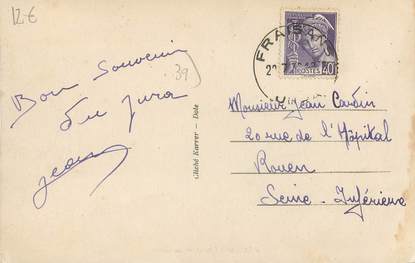 12 €
39
Bon Souvenir
du Jura
Jean
Cliché Karrer - Dole
FRAISANS
POSTES 40
Monsieur Jean Cardin
20 rue de l'Hôpital
Rouen
Seine-Inférieure